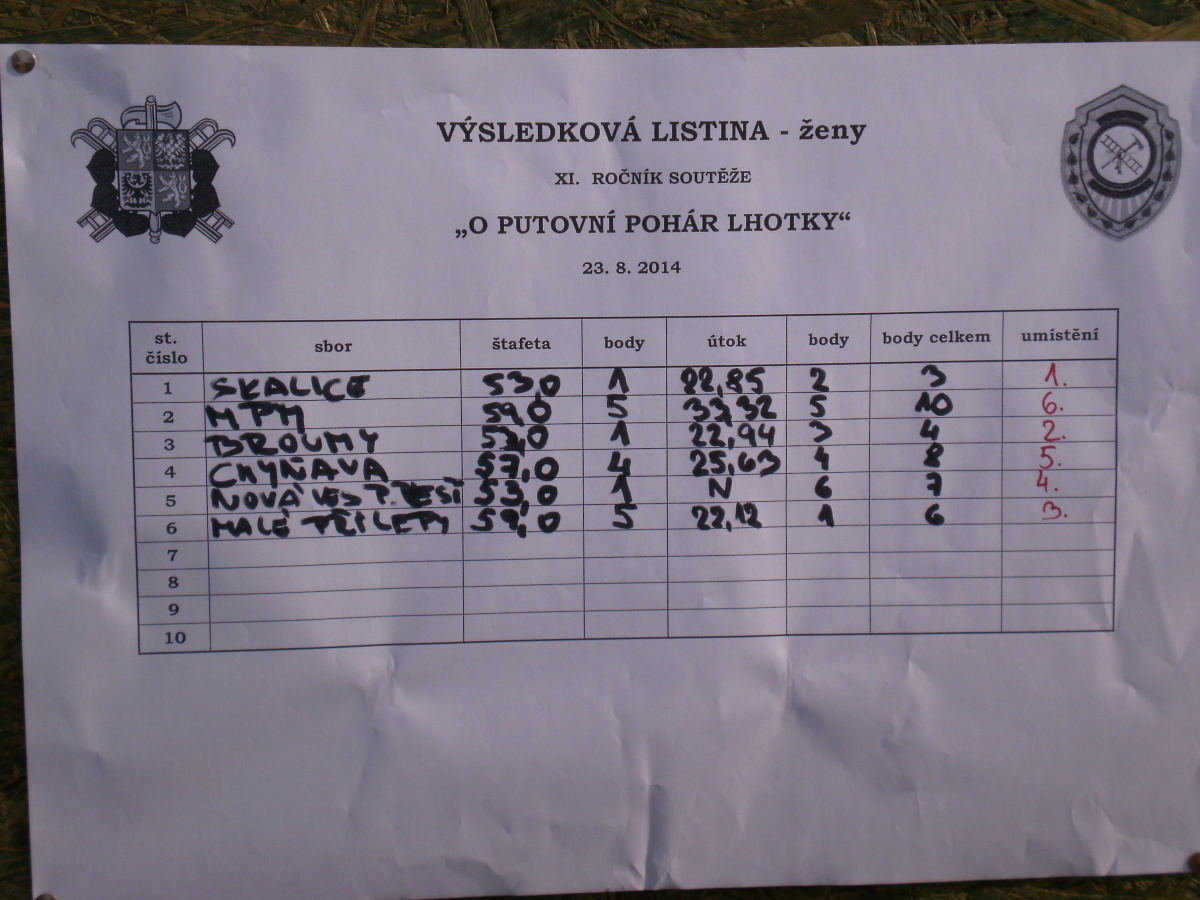 VÝSLEDKOVÁ LISTINA - ženy
XI. ROČNÍK SOUTĚŽE
„O PUTOVNÍ POHÁR LHOTKY“
23. 8. 2014
st. číslo sbor štafeta body útok body body celkem umístění
1 SKALICE 53,0 1 22,85 2 3 1.
2 MPM 59,0 5 33,32 5 10 6.
3 BROUMY 53,0 1 22,94 3 4 2.
4 CHYŇAVA 57,0 4 25,63 4 8 5.
5 NOVÁ VES P. 53,0 1 N 6 7 4.
6 MALÉ PŘÍLEPY 59,0 5 22,12 1 6 3.
7
8
9
10